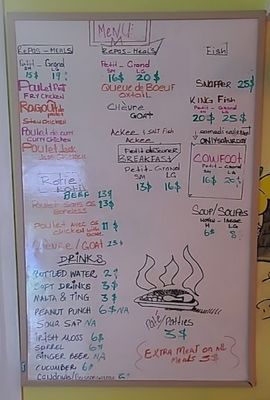 MENU
Repas-Meals
Petit - Grand
SM LG
15$ 19$
Poulet Frit
Fry Chicken
Ragoût de poulet
Stew Chicken
Poulet au curri
Curri Chicken
Poulet Jerk
Jerk Chicken
Rotie
BEEF 13$
Poulet sans OS 13$
Boneless
Poulet avec OS 11$
chicken with bone
Chevre/GOAT 13$
Repas-Meals
Petit - Grand
SM LG
16$ 20$
Queue de Boeuf
oxtail
Chèvre
Goat
Ackee & Salt Fish
Ackee
Petit déjeuner
BREAKFAST
Petit - Grand
SM LG
13$ 16$
Fish
SNAPPER 25$
KING Fish
Petit - Grand
20$ 25$
ONLY SATURDAY
COWFOOT
Petit - Grand
M LG
16$ 20$
Soup/Soupes
M LG
6$ 8$
DRINKS
BOTTLED WATER 2$
SOFT DRINKS 3$
MALTA & TING 3$
PEANUT PUNCH 6$ NA
SOUR SAP NA
IRISH MOSS 6$
SORREL 6$
GINGER BEER NA
CUCUMBER 6$
Patties
3$
EXTRA MEAT ON ALL
MEALS 3$